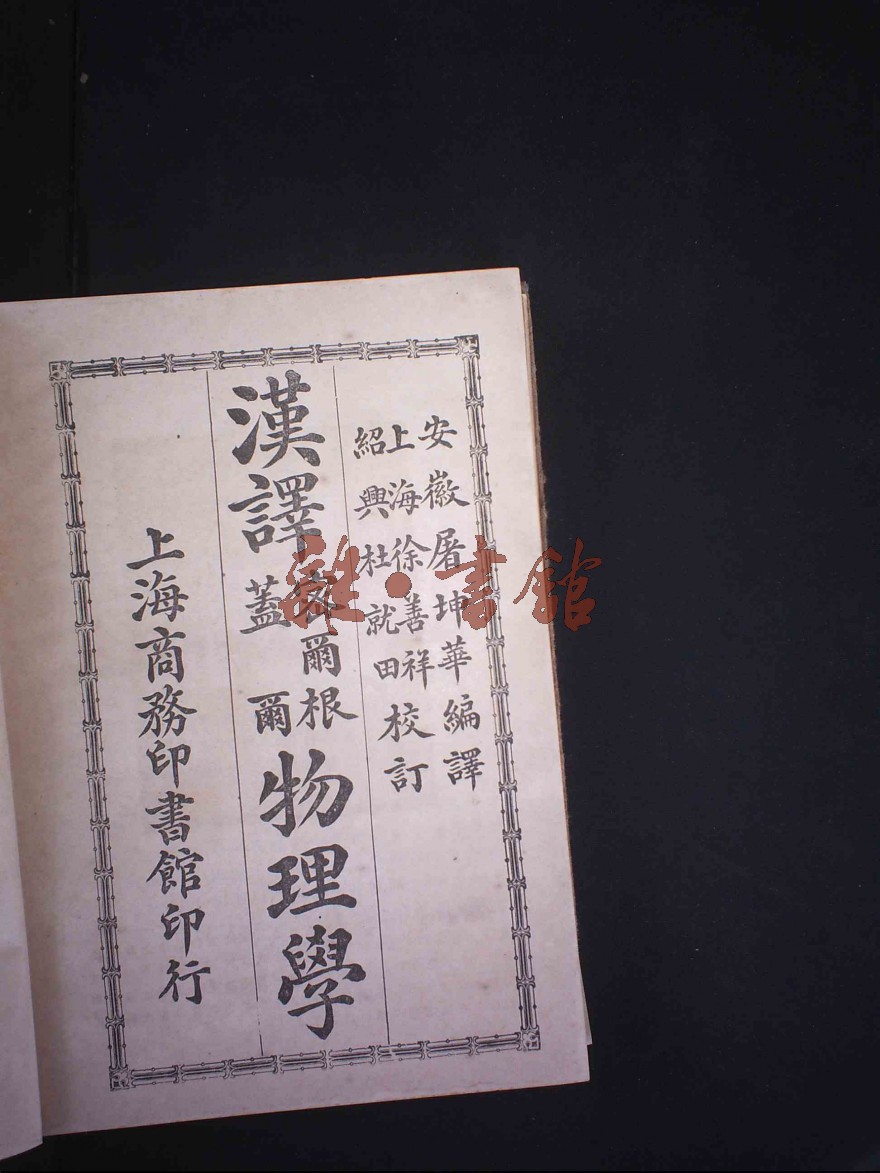 安徽屠坤華編譯
上海徐善祥
紹興杜就田
校訂
漢譯
密爾根
蓋爾
物理學
上海商務印書館印行
雜·書館